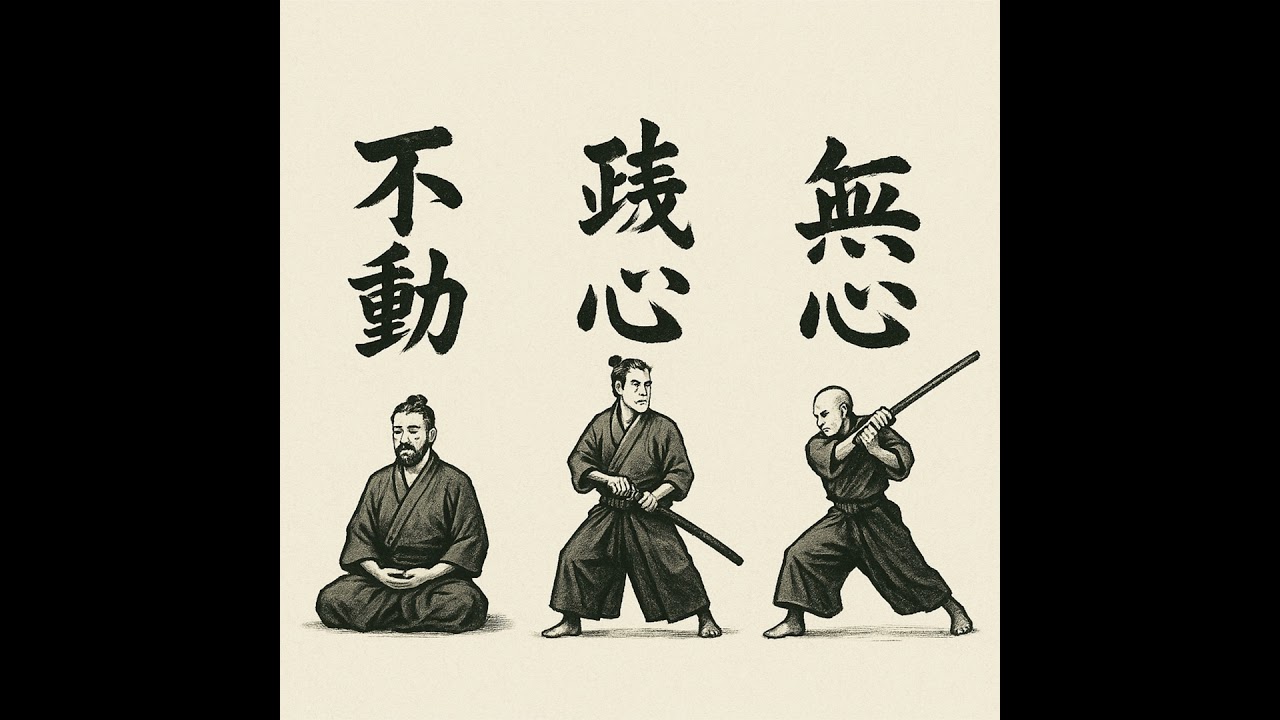 不動
心
無心